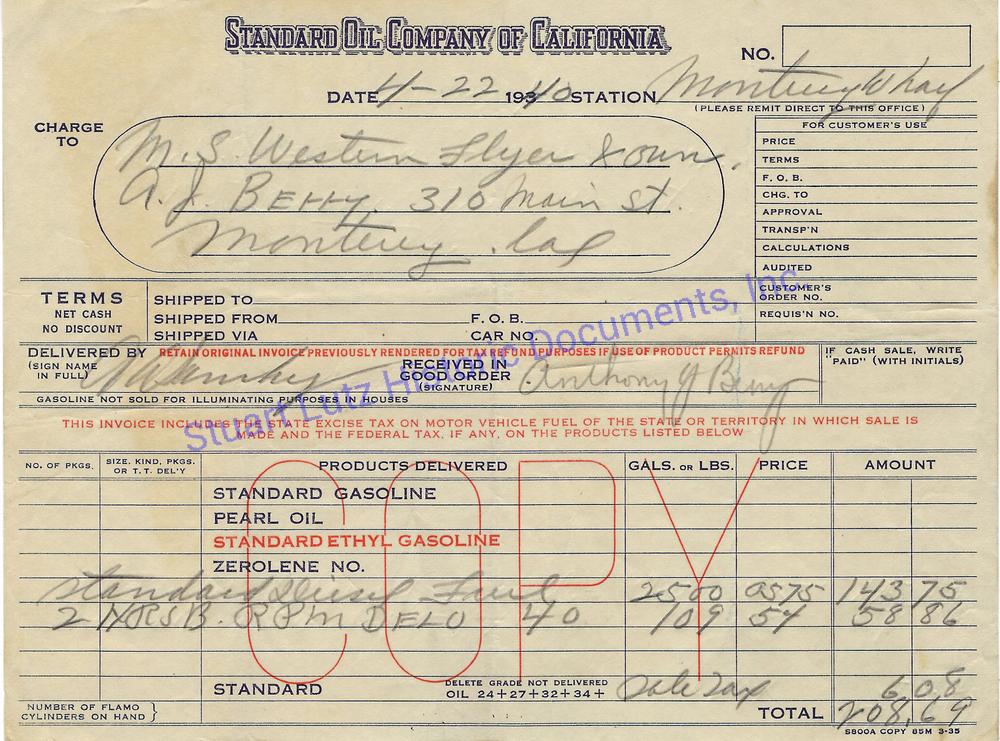 STANDARD OIL COMPANY OF CALIFORNIA
NO.
DATE 4-22 1940 STATION Monterey Wharf
(PLEASE REMIT DIRECT TO THIS OFFICE)
CHARGE TO
M.S. Western Flyer & own.
A.J. Berry, 310 Main st.
Monterey. Cal
FOR CUSTOMER'S USE
PRICE
TERMS
F. O. B.
CHG. TO
APPROVAL
TRANSP'N
CALCULATIONS
AUDITED
CUSTOMER'S ORDER NO.
REQUIS'N NO.
TERMS
NET CASH
NO DISCOUNT
SHIPPED TO
SHIPPED FROM F. O. B.
SHIPPED VIA CAR NO.
Stuart Lutz Historic Documents, Inc.
DELIVERED BY
(SIGN NAME IN FULL)
RETAIN ORIGINAL INVOICE PREVIOUSLY RENDERED FOR TAX REFUND PURPOSES IF USE OF PRODUCT PERMITS REFUND
RECEIVED IN GOOD ORDER
(SIGNATURE)
Anthony J Berry
IF CASH SALE, WRITE "PAID" (WITH INITIALS)
GASOLINE NOT SOLD FOR ILLUMINATING PURPOSES IN HOUSES
THIS INVOICE INCLUDES THE STATE EXCISE TAX ON MOTOR VEHICLE FUEL OF THE STATE OR TERRITORY IN WHICH SALE IS
MADE AND THE FEDERAL TAX, IF ANY, ON THE PRODUCTS LISTED BELOW
NO. OF PKGS. SIZE, KIND, PKGS. OR T.T. DEL'Y PRODUCTS DELIVERED GALS. OR LBS. PRICE AMOUNT
COPY
STANDARD GASOLINE
PEARL OIL
STANDARD ETHYL GASOLINE
ZEROLENE NO.
Standard Diesel Fuel 2500 0575 143 75
2 RPM DELO 40 109 54 58 86
STANDARD DELETE GRADE NOT DELIVERED OIL 24+27+32+34+ Sale Tax 6 08
NUMBER OF FLAMO CYLINDERS ON HAND } TOTAL 208.69
S800A COPY 85M 3-35